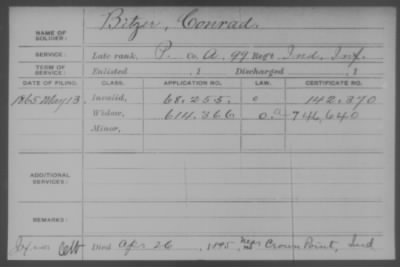 NAME OF SOLDIER: Bitzer, Conrad.
SERVICE: Late rank, P. Co. A, 99 Reg't Ind. Inf.
TERM OF SERVICE: Enlisted , 1 Discharged , 1
DATE OF FILING. CLASS. APPLICATION NO. LAW. CERTIFICATE NO.
1865 May 13 Invalid, 68.255. 142.370
Widow, 614.366 746,640
Minor,
ADDITIONAL SERVICES:
REMARKS:
Died Apr 26, 1895, near Crown Point, Ind